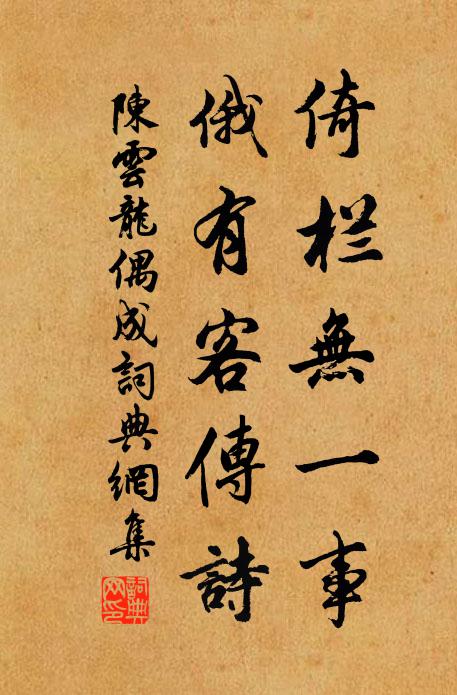 倚栏無一事
俄有客傳詩
陳雲龍偶成詞典網集
詞典
网印